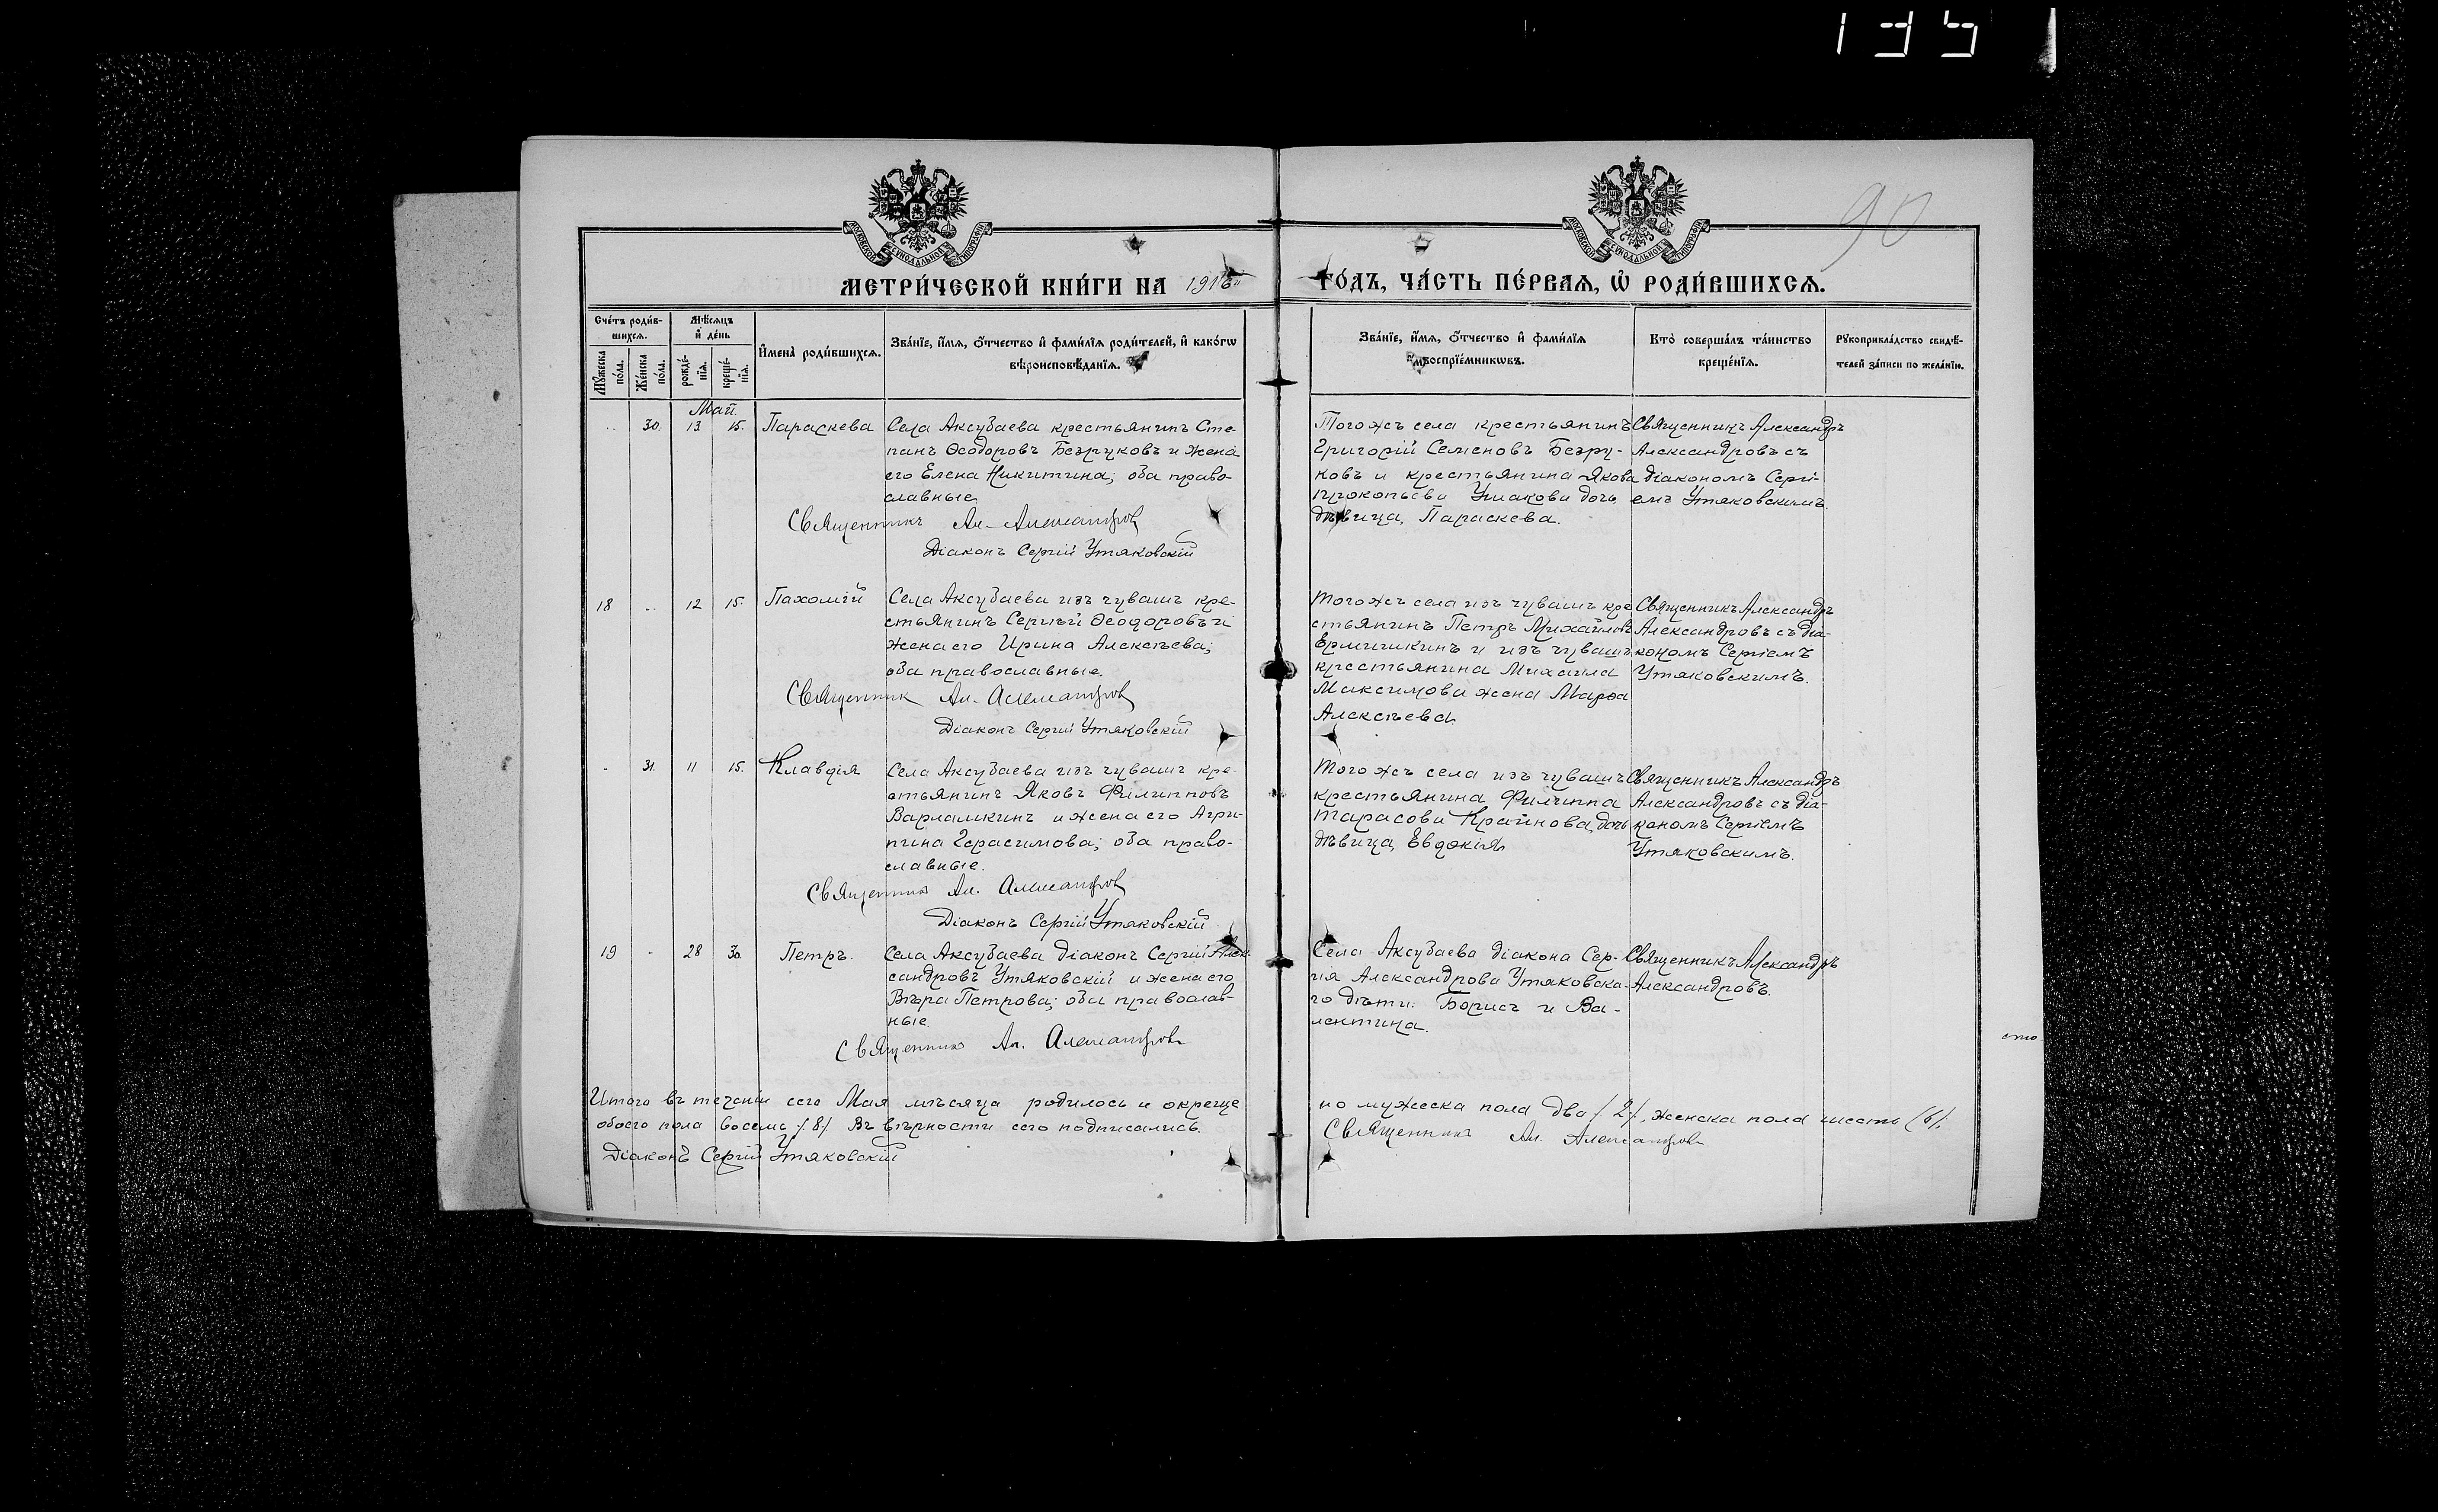 1351
90
МЕТРИ́ЧЕСКОЙ КНИ́ГИ НА 1916
ГО́ДЪ, ЧА́СТЬ ПЕ́РВАѦ, Ѡ҆ РОДИ́ВШИХСѦ.
Сче́тъ роди́в-
шихсѧ.
Мꙋ́жеска по́ла.
Же́нска по́ла.
Мѣ́сѧцъ
и҆ де́нь
рожде́-
нїѧ.
креще́-
нїѧ.
И҆мена̀ роди́вшихсѧ.
Зва́нїе, и҆́мѧ, ѻ҆́тчество и҆ фами́лїѧ роди́телей, и҆ како́гѡ
вѣроисповѣ́данїѧ.
Зва́нїе, и҆́мѧ, ѻ҆́тчество и҆ фами́лїѧ
воспрїе́мникѡвъ.
Кто̀ соверша́лъ та́инство
креще́нїѧ.
Рꙋкоприкла́дство свидѣ́-
телей за́писи по жела́нїю.
Май.
30. 13 15. Параскева
Села Аксубаева крестьянинъ Сте-
панъ Ѳеодоровъ Безруковъ и жена
его Елена Никитина; оба право-
славные.
Священникъ Ал. Александров
Діаконъ Сергій Утяковскій
Того жъ села крестьянинъ
Григорій Семеновъ Безру-
ковъ и крестьянина Якова
Прокопьева Ушакова дочь
дѣвица, Параскева.
Священникъ Александръ
Александровъ съ
діакономъ Сергі-
емъ Утяковскимъ.
18 12 15. Пахомій
Села Аксубаева изъ чувашъ кре-
стьянинъ Сергѣй Ѳеодоровъ и
жена его Ирина Алексѣева;
оба православные.
Священник Ал. Александров
Діаконъ Сергій Утяковскій
Того жъ села изъ чувашъ кре
стьянинъ Петръ Михайловъ
Ермишкинъ и изъ чувашъ
крестьянина Михаила
Максимова жена Марѳа
Алексѣева.
Священникъ Александръ
Александровъ съ діа-
кономъ Сергіемъ
Утяковскимъ.
31. 11 15. Клавдія
Села Аксубаева изъ чувашъ кре-
стьянинъ Яковъ Филипповъ
Варламкинъ и жена его Агри-
пина Герасимова; оба право-
славные.
Священник Ал. Александров
Діаконъ Сергій Утяковскій
Того жъ села изъ чувашъ
крестьянина Филиппа
Тарасова Крайнова, дочь
дѣвица, Евдокія.
Священникъ Александръ
Александровъ съ діа-
кономъ Сергіемъ
Утяковскимъ.
19 - 28 30. Петръ.
Села Аксубаева діаконъ Сергій Алек-
сандровъ Утяковскій и жена его
Вѣра Петрова; оба православ-
ные.
Священник Ал. Александров
Села Аксубаева діакона Сер-
гія Александрова Утяковска-
го дѣти: Борисъ и Ва-
лентина.
Священникъ Александръ
Александровъ.
Итого въ теченіи сего Мая мѣсяца родилось и окреще
но мужеска пола два /2/, женска пола шесть (6)
обоего пола восемь /8/ Въ вѣрности сего подписались.
Священник Ал. Александров
Діаконъ Сергій Утяковскій